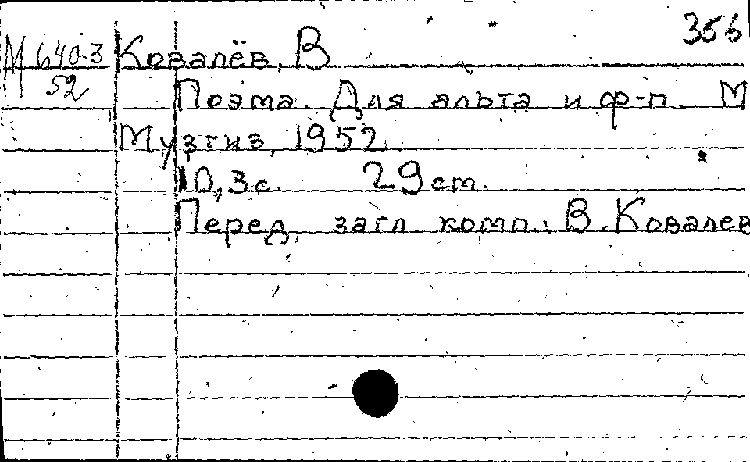 356
М 640-3
52
Ковалёв, В
Поэма. Для альта и ф-п. М
Музгиз, 1952.
10,3с. 29 cm.
Перед. загл. комп.: В. Ковалев